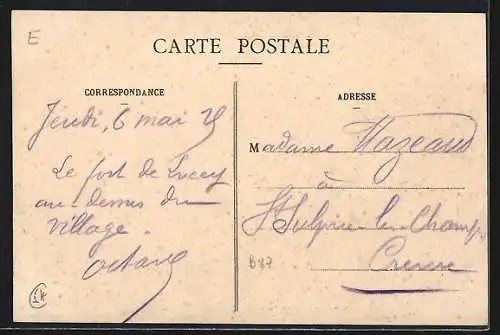 E
CARTE POSTALE
CORRESPONDANCE
Jeudi, 6 mai 25
Le fort de Lucey
au-dessus du
village.
Octave
ADRESSE
Madame Mazeaud
à
St Sulpice-les-Champs
Creuse
B87